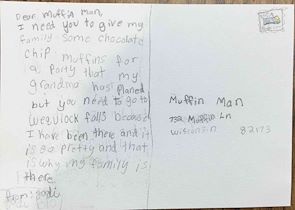 Dear Muffin Man,
I need you to give my
family some chocolate
chip muffins for
a party that my
grandma has planed
but you need to go to
falls becaus
I have been there and it
is so pretty and that
is why my family is
there.
from:
Muffin Man
Muffin Ln
Wisconsin 82173